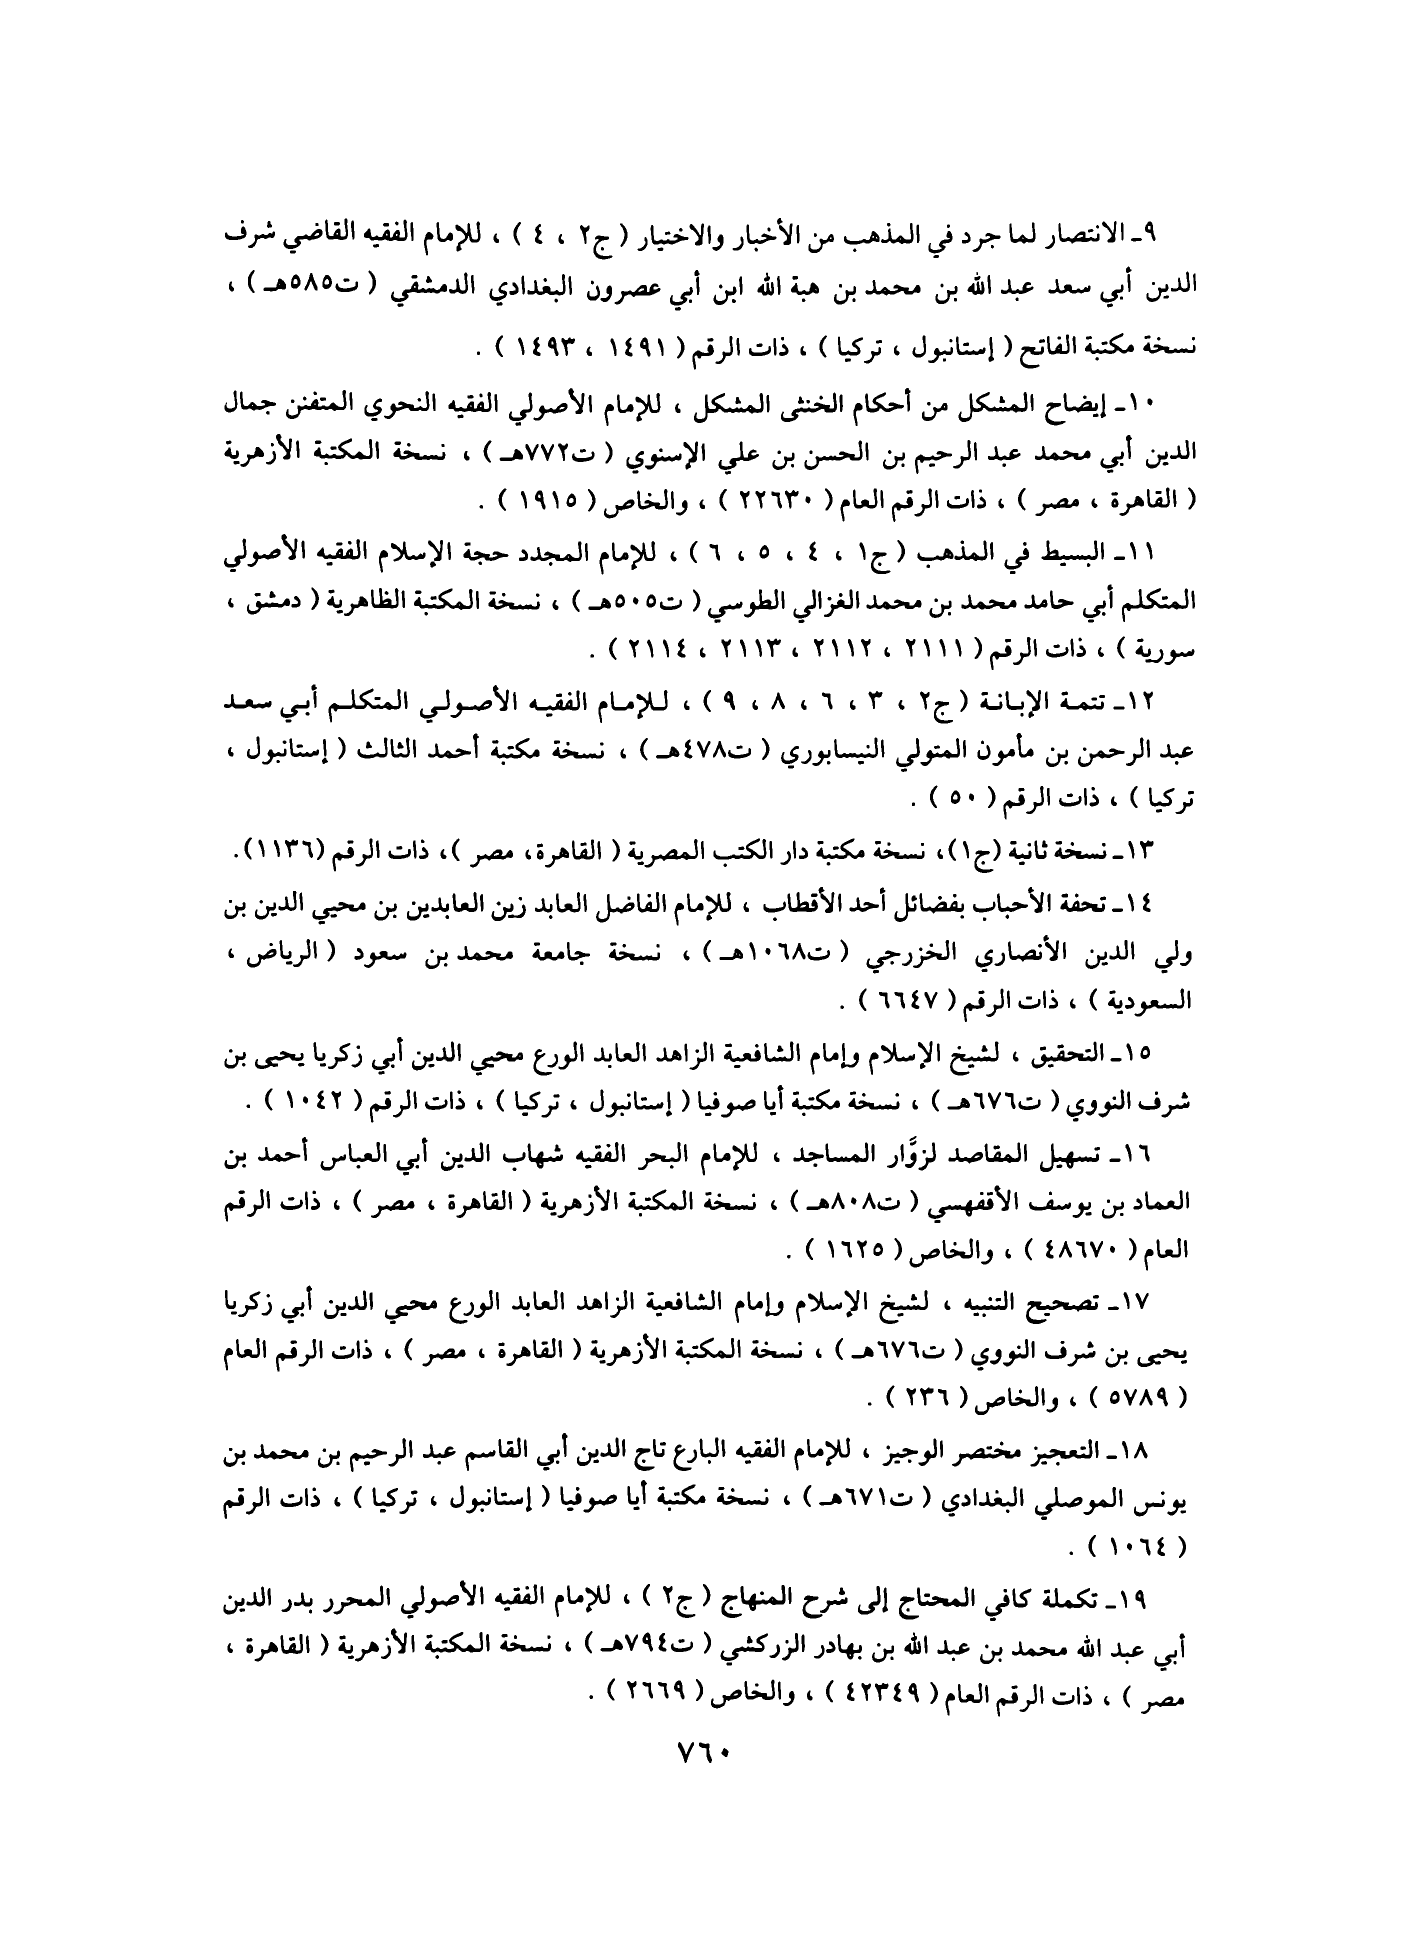 ٩ـ الانتصار لما جرد في المذهب من الأخبار والاختيار ( ج٢ ، ٤ ) ، للإمام الفقيه القاضي شرف
الدين أبي سعد عبد الله بن محمد بن هبة الله ابن أبي عصرون البغدادي الدمشقي ( ت٥٨٥هـ ) ،
نسخة مكتبة الفاتح ( إستانبول ، تركيا ) ، ذات الرقم ( ١٤٩١ ، ١٤٩٣ ) .
١٠ـ إيضاح المشكل من أحكام الخنثى المشكل ، للإمام الأصولي الفقيه النحوي المتفنن جمال
الدين أبي محمد عبد الرحيم بن الحسن بن علي الإسنوي ( ت٧٧٢هـ ) ، نسخة المكتبة الأزهرية
( القاهرة ، مصر ) ، ذات الرقم العام ( ٢٢٦٣٠ ) ، والخاص ( ١٩١٥ ) .
١١ـ البسيط في المذهب ( ج١ ، ٤ ، ٥ ، ٦ ) ، للإمام المجدد حجة الإسلام الفقيه الأصولي
المتكلم أبي حامد محمد بن محمد الغزالي الطوسي ( ت٥٠٥هـ ) ، نسخة المكتبة الظاهرية ( دمشق ،
سورية ) ، ذات الرقم ( ٢١١١ ، ٢١١٢ ، ٢١١٣ ، ٢١١٤ ) .
١٢ـ تتمة الإبانة ( ج٢ ، ٣ ، ٦ ، ٨ ، ٩ ) ، للإمام الفقيه الأصولي المتكلم أبي سعد
عبد الرحمن بن مأمون المتولي النيسابوري ( ت٤٧٨هـ ) ، نسخة مكتبة أحمد الثالث ( إستانبول ،
تركيا ) ، ذات الرقم ( ٥٠ ) .
١٣ـ نسخة ثانية (ج١)، نسخة مكتبة دار الكتب المصرية ( القاهرة، مصر )، ذات الرقم (١١٣٦).
١٤ـ تحفة الأحباب بفضائل أحد الأقطاب ، للإمام الفاضل العابد زين العابدين بن محيي الدين بن
ولي الدين الأنصاري الخزرجي ( ت١٠٦٨هـ ) ، نسخة جامعة محمد بن سعود ( الرياض ،
السعودية ) ، ذات الرقم ( ٦٦٤٧ ) .
١٥ـ التحقيق ، لشيخ الإسلام وإمام الشافعية الزاهد العابد الورع محيي الدين أبي زكريا يحيى بن
شرف النووي ( ت٦٧٦هـ ) ، نسخة مكتبة أيا صوفيا ( إستانبول ، تركيا ) ، ذات الرقم ( ١٠٤٢ ) .
١٦ـ تسهيل المقاصد لزوَّار المساجد ، للإمام البحر الفقيه شهاب الدين أبي العباس أحمد بن
العماد بن يوسف الأقفهسي ( ت٨٠٨هـ ) ، نسخة المكتبة الأزهرية ( القاهرة ، مصر ) ، ذات الرقم
العام ( ٤٨٦٧٠ ) ، والخاص ( ١٦٢٥ ) .
١٧ـ تصحيح التنبيه ، لشيخ الإسلام وإمام الشافعية الزاهد العابد الورع محيي الدين أبي زكريا
يحيى بن شرف النووي ( ت٦٧٦هـ ) ، نسخة المكتبة الأزهرية ( القاهرة ، مصر ) ، ذات الرقم العام
( ٥٧٨٩ ) ، والخاص ( ٢٣٦ ) .
١٨ـ التعجيز مختصر الوجيز ، للإمام الفقيه البارع تاج الدين أبي القاسم عبد الرحيم بن محمد بن
يونس الموصلي البغدادي ( ت٦٧١هـ ) ، نسخة مكتبة أيا صوفيا ( إستانبول ، تركيا ) ، ذات الرقم
( ١٠٦٤ ) .
١٩ـ تكملة كافي المحتاج إلى شرح المنهاج ( ج٢ ) ، للإمام الفقيه الأصولي المحرر بدر الدين
أبي عبد الله محمد بن عبد الله بن بهادر الزركشي ( ت٧٩٤هـ ) ، نسخة المكتبة الأزهرية ( القاهرة ،
مصر ) ، ذات الرقم العام ( ٤٢٣٤٩ ) ، والخاص ( ٢٦٦٩ ) .
٧٦٠